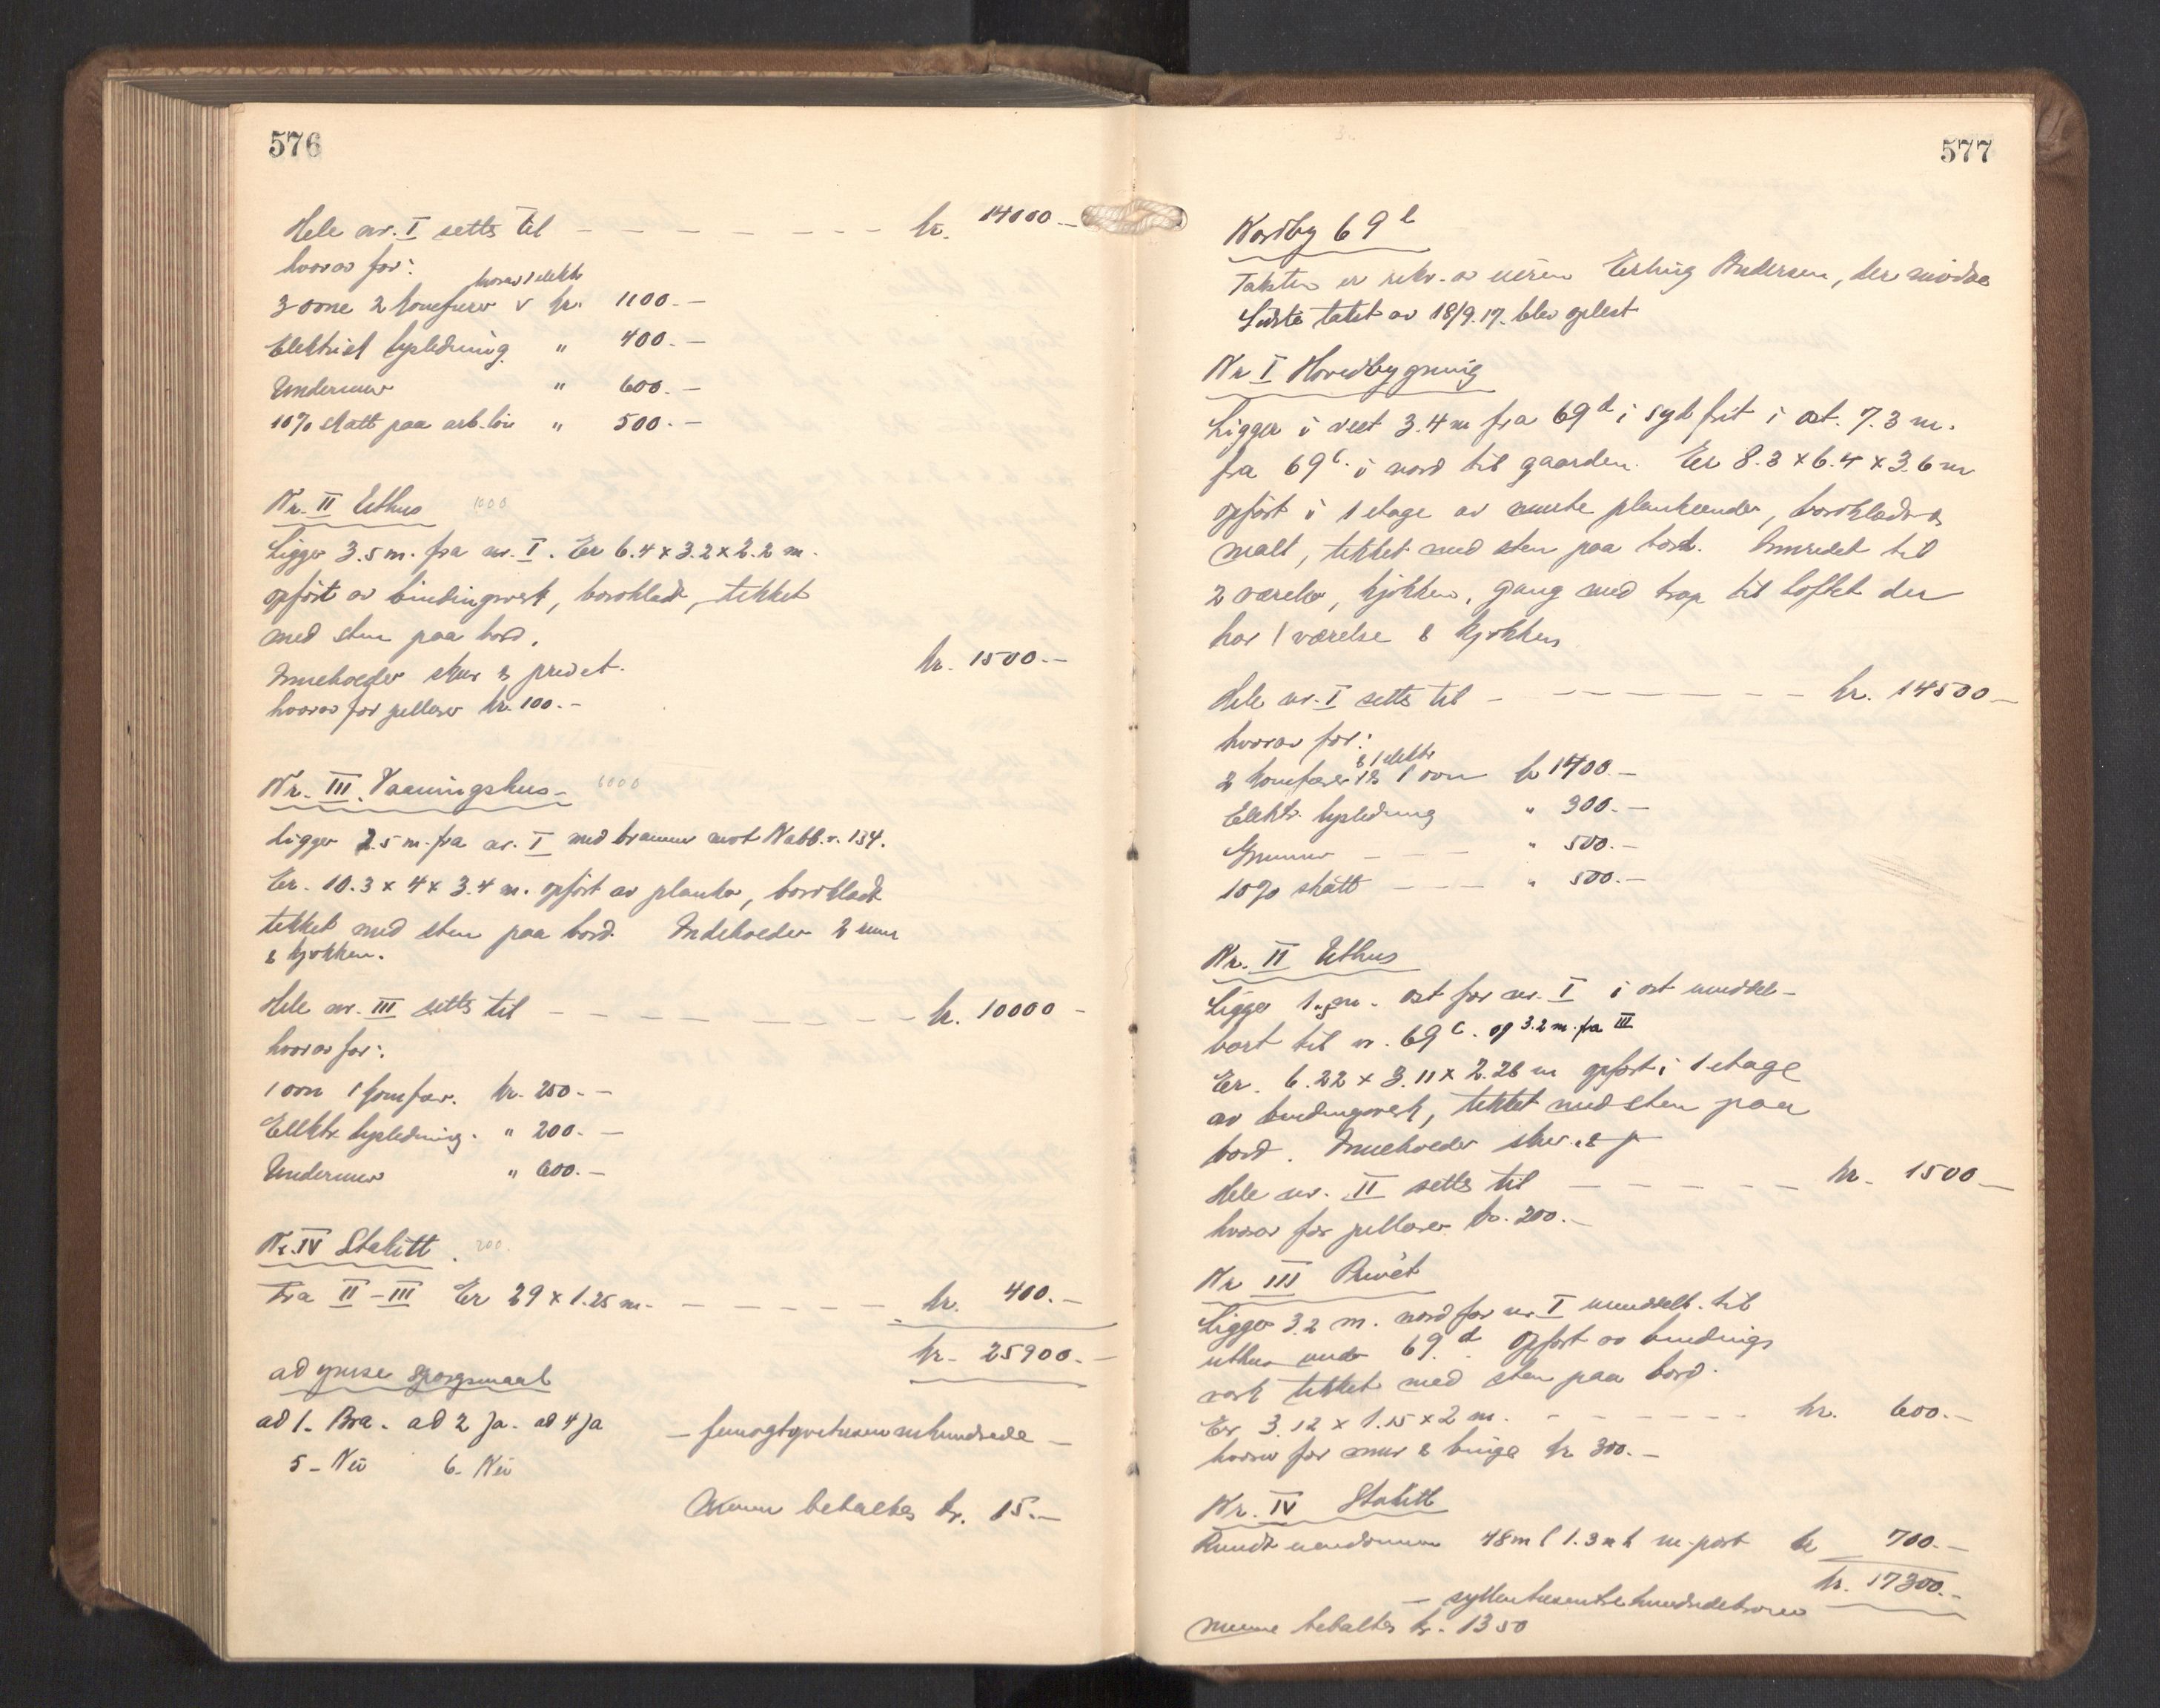 576
Hele nr. I settes til — — — — — — — — kr. 14000.—
hvorav for:
hvorav 1 elektr
3 ovne 2 komfurer v kr. 1100.—
Elektrisk lysledning " 400.—
Undermur " 600.—
10% skatt paa arb.løn " 500.—
Nr. II Uthus 1000
Ligger 3.5 m. fra nr. I. Er 6.4 x 3.2 x 2.2 m.
opført av bindingsverk, bordklædt, tekket
med sten paa bord.
Inneholder skur & privet. kr. 1500.—
hvorav for pillarer kr. 100.—
Nr. III. Vaaningshus 6000
Ligger 2.5 m. fra nr. I med bramur mot Nabb.v. 134.
Er. 10.3 x 4 x 3.4 m. opført av planker, bordklædt
tekket med sten paa bord. Indeholder 2 rum
& kjøkken.
Hele nr. III settes til — — — — — — — — kr. 10000 —
hvorav for:
1 ovn 1 komfur. kr. 250.—
Elektr. lysledning. " 200.—
Undermur " 600.—
Nr. IV Stakitt. 200.
Fra II – III Er 29 x 1.25 m. — — — — — — kr. 400.—
kr. 25900.—
ad spørsmaal
ad 1. Bra. ad 2 ja. ad 4 ja — femogtyvetusennihundrede —
5 – Nei 6 – Nei
betaltes kr. 15.—
577
Nordby 69 l
Taksten er rekv. av eieren Erling Andersen, der mødte
Sidste takst av 18/9.17. blev oplest
Nr I Hovedbygning
Ligger i vest 3.4 m fra 69 d i syd frit i øst. 7.3 m.
fra 69 c. i nord til gaarden. Er 8.3 x 6.4 x 3.6 m
opført i 1 etage av plankender, bordklædt &
malt, tekket med sten paa bord. Innredet til
2 værelser, kjøkken, gang med trap til loftet der
har 1 værelse & kjøkken
Hele nr. I settes til — — — — — — — kr. 14500 —
hvorav for:
& 1 elektr
2 komfurer & 1 ovn kr 1400.—
Elektr. lysledning " 300.—
Grunmur — — — " 500.—
10% skatt — — — " 500.—
Nr. II Uthus
Ligger 1.5 m. øst for nr. I i øst umiddel-
bart til nr. 69 c. og 3.2 m. fra III
Er. 6.22 x 3.11 x 2.28 m opført i 1 etage
av bindingsverk, tekket med sten paa
bord. Inneholder skur. & p
Hele nr. II settes til — — — — — — kr. 1500 —
hvorav for pillarer kr. 200.—
Nr III Privét
Ligger 3.2 m. nord for nr. I umiddelb. til
uthus under 69. d. Opført av bindings
verk tekket med sten paa bord.
Er 3.12 x 1.15 x 2 m. — — — — — — kr. 600.—
hvorav for mur & binge kr 300.—
Nr. IV Stakitt
Rundt eiendommen 48 m l 1.3 m h m. port kr 700.—
kr. 17300.—
— syttentusentrehundredekroner
betaltes kr. 13 50